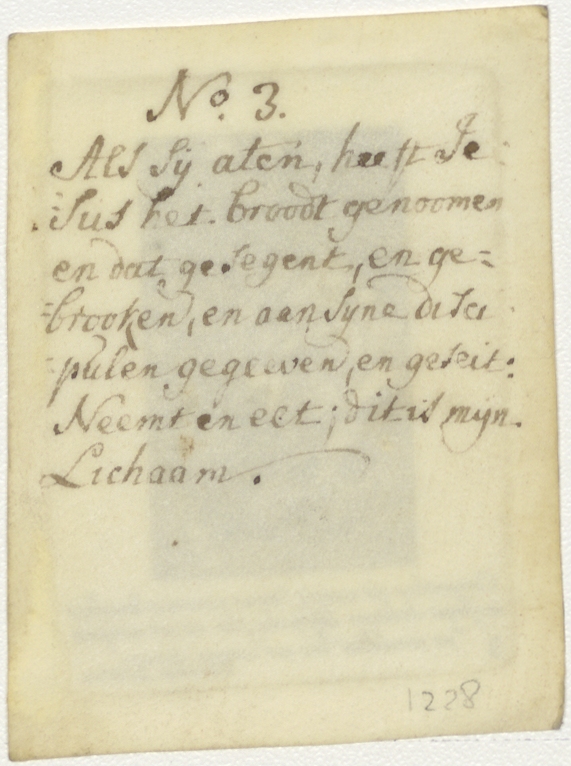 No. 3.
Als sij aten, heeft Je
=sus het broodt genoomen
en dat gesegent, en ge=
=brooken, en aan syne disci
=pulen gegeeven, en geseit:
Neemt en eet; dit is mijn
Lichaam.
1228